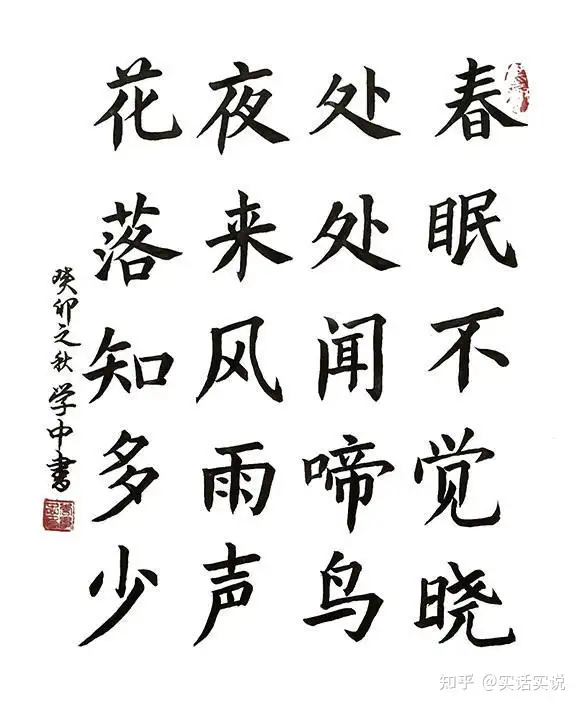 春眠不觉晓
处处闻啼鸟
夜来风雨声
花落知多少
癸卯之秋学中书
知乎 @实话实说